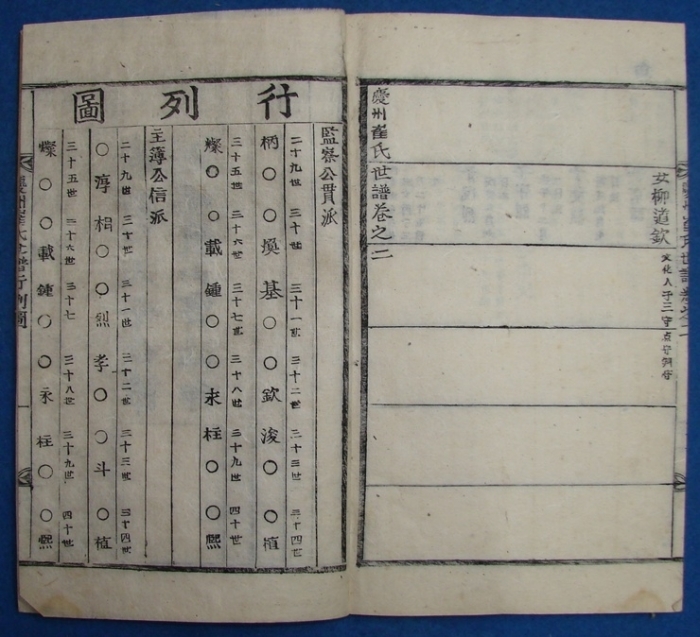 慶州崔氏世譜卷之二
女柳道欽
行列圖
監察公貫派
二十九世 三十世 三十一世 三十二世 三十三世 三十四世
柄○ ○煥 基○ ○欽 浚○ ○植
三十五世 三十六世 三十七世 三十八世 三十九世 四十世
燦○ ○載 鍾○ ○求 柱○ ○熙
主簿公信派
二十九世 三十世 三十一世 三十二世 三十三世 三十四世
○淳 相○ ○烈 孝○ ○斗 ○植
三十五世 三十六世 三十七 三十八世 三十九世 四十世
燦○ ○載 鍾○ ○永 柱○ ○熙